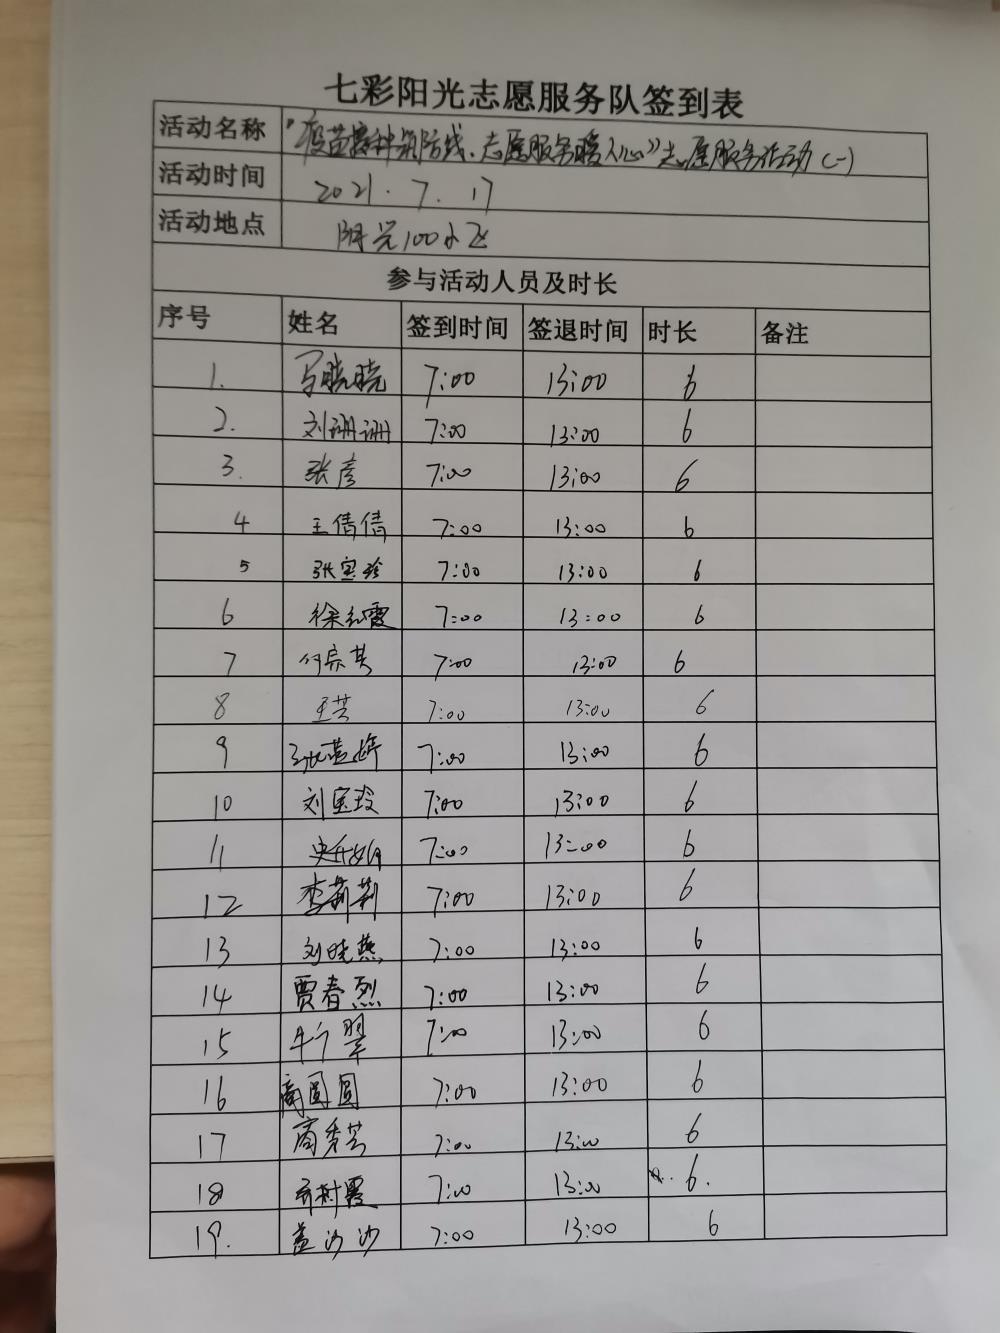 七彩阳光志愿服务队签到表
活动名称 "疫苗接种筑防线、志愿服务暖人心"志愿服务活动(一)
活动时间 2021.7.17
活动地点 阳光100小区
参与活动人员及时长
序号 姓名 签到时间 签退时间 时长 备注
1. 马晓晓 7:00 13:00 6
2. 刘珊珊 7:00 13:00 6
3. 张彦 7:00 13:00 6
4 王倩倩 7:00 13:00 6
5 张宝珍 7:00 13:00 6
6 徐红霞 7:00 13:00 6
7 何宗英 7:00 13:00 6
8 王芸 7:00 13:00 6
9 7:00 13:00 6
10 刘宝玲 7:00 13:00 6
11 7:00 13:00 6
12 李莉莉 7:00 13:00 6
13 刘晓燕 7:00 13:00 6
14 贾春烈 7:00 13:00 6
15 7:00 13:00 6
16 商圆圆 7:00 13:00 6
17 商秀芸 7:00 13:00 6
18 7:00 13:00 6.
19. 盖沙沙 7:00 13:00 6